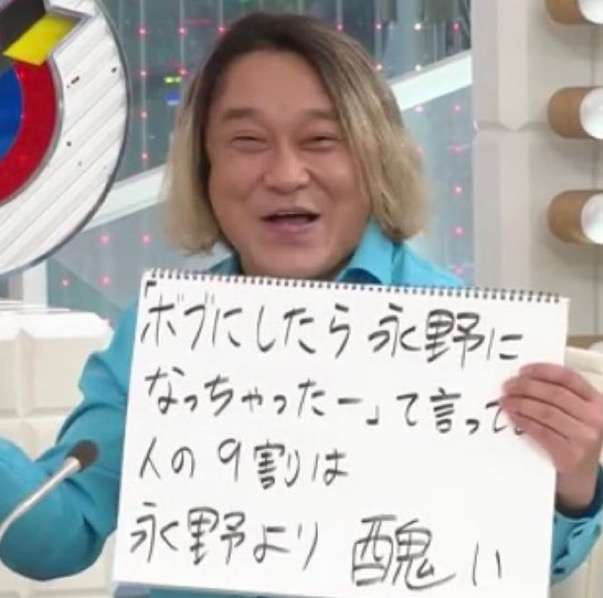 「ボブにしたら永野に
なっちゃったー」て言って
人の9割りは
永野より 醜い